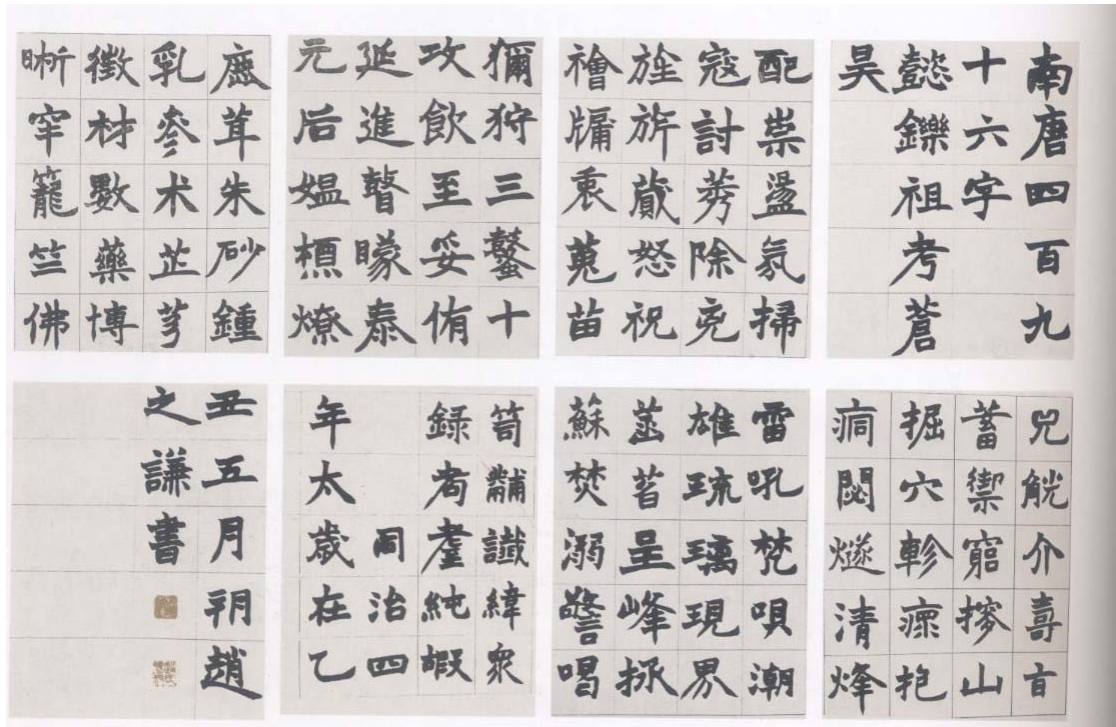 南唐四百九
十六字
懿鑠祖考蒼
昊
配祟盪氛掃
寇討莠除兇
旌旂蕆怒祝
禬牖衷蒐苗
獮狩三十
攻飲至妥侑
延進瞽矇泰
元后媼槱燎
鹿茸朱砂鍾
乳參术芷芎
徵材數藥博
晰罕籠竺佛
兕觥介壽旨
蓄禦窮山
掘穴軫瘝抱
痌閟燧清烽
雷吼梵唄潮
雄琉璃現界
菡萏呈峰拯
蘇焚溺警喝
笥黼讖緯眾
録耇耋純嘏
同治四
年太歲在乙
丑五月朔趙
之謙書